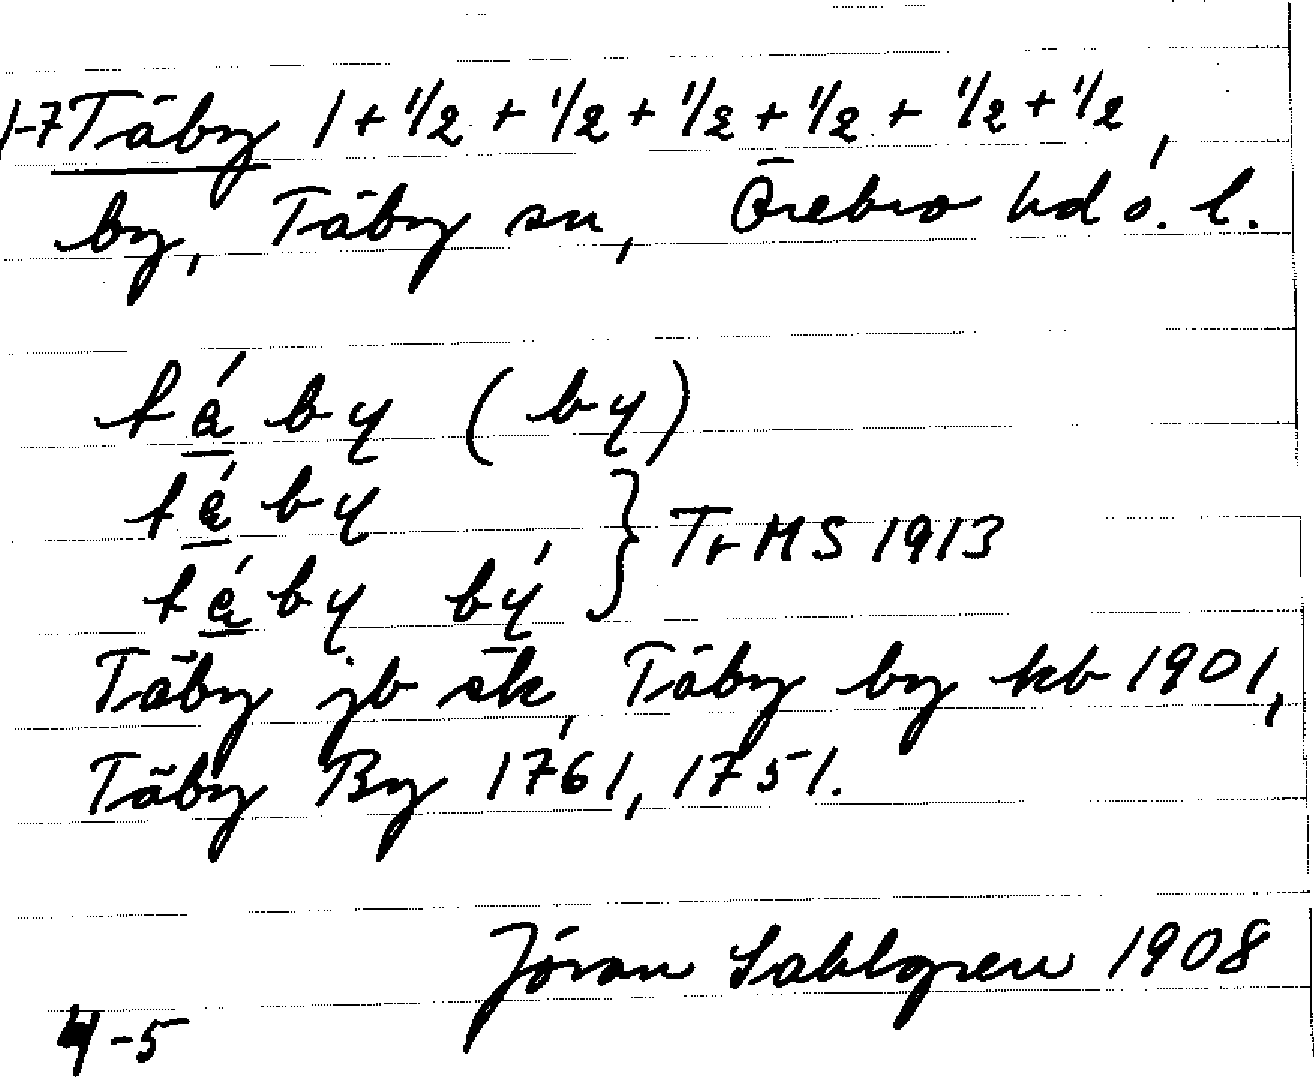 1-7 Täby 1 + 1/2 + 1/2 + 1/2 + 1/2 + 1/2 + 1/2,
by, Täby sn, Örebro hd ö. l.
tá̱by (by)
tá̱by
tá̱by bý } Tr MS 1913
Täby jb sk, Täby by kb 1901,
Täby By 1761, 1751.
Jöran Sahlgren 1908
4-5